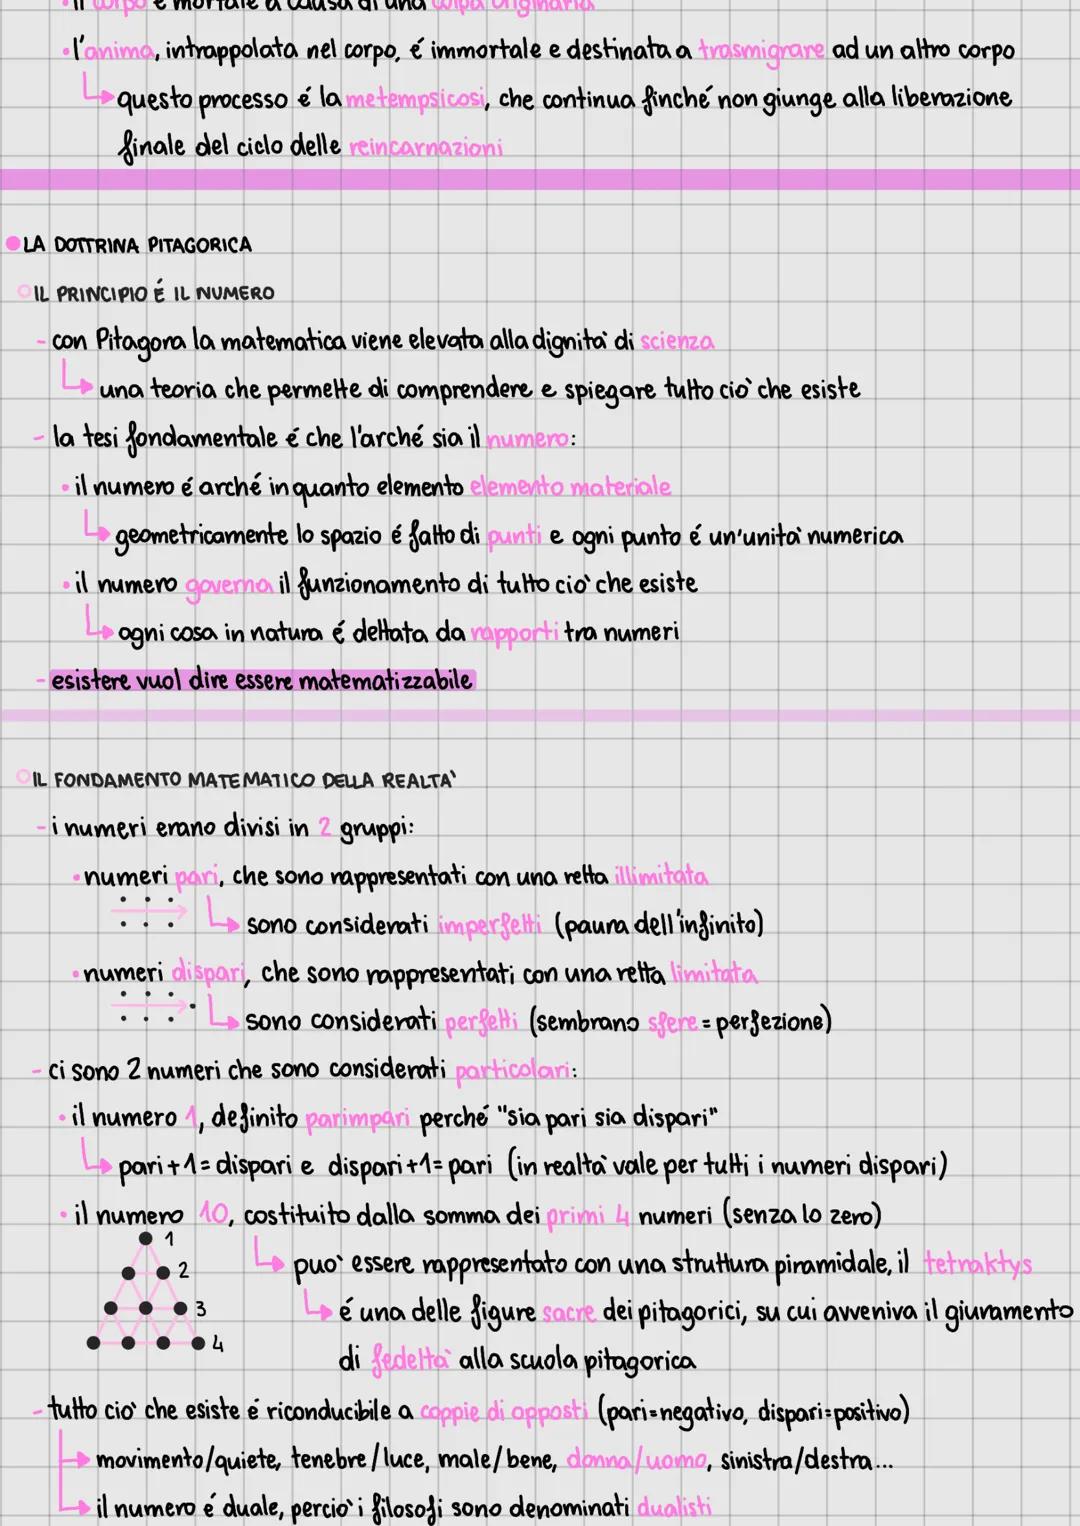 •il corpo é mortale a causa di una colpa originaria
•l'anima, intrappolata nel corpo, é immortale e destinata a trasmigrare ad un altro corpo
questo processo é la metempsicosi, che continua finché non giunge alla liberazione
finale del ciclo delle reincarnazioni
LA DOTTRINA PITAGORICA
IL PRINCIPIO É IL NUMERO
- con Pitagora la matematica viene elevata alla dignità di scienza
una teoria che permette di comprendere e spiegare tutto ciò che esiste
- la tesi fondamentale é che l'arché sia il numero:
• il numero é arché in quanto elemento elemento materiale
geometricamente lo spazio é fatto di punti e ogni punto é un'unità numerica
• il numero governa il funzionamento di tutto ciò che esiste
ogni cosa in natura é dettata da rapporti tra numeri
- esistere vuol dire essere matematizzabile
IL FONDAMENTO MATEMATICO DELLA REALTA'
- i numeri erano divisi in 2 gruppi:
• numeri pari, che sono rappresentati con una retta illimitata
sono considerati imperfetti (paura dell'infinito)
• numeri dispari, che sono rappresentati con una retta limitata
sono considerati perfetti (sembrano sfere = perfezione)
- ci sono 2 numeri che sono considerati particolari:
• il numero 1, definito parimpari perché "sia pari sia dispari"
pari+1= dispari e dispari+1= pari (in realtà vale per tutti i numeri dispari)
• il numero 10, costituito dalla somma dei primi 4 numeri (senza lo zero)
1
può essere rappresentato con una struttura piramidale, il tetraktys
2
3
é una delle figure sacre dei pitagorici, su cui avveniva il giuramento
4
di fedeltà alla scuola pitagorica
- tutto ciò che esiste é riconducibile a coppie di opposti (pari=negativo, dispari=positivo)
movimento/quiete, tenebre/luce, male/bene, donna/uomo, sinistra/destra...
il numero é duale, perciò i filosofi sono denominati dualisti